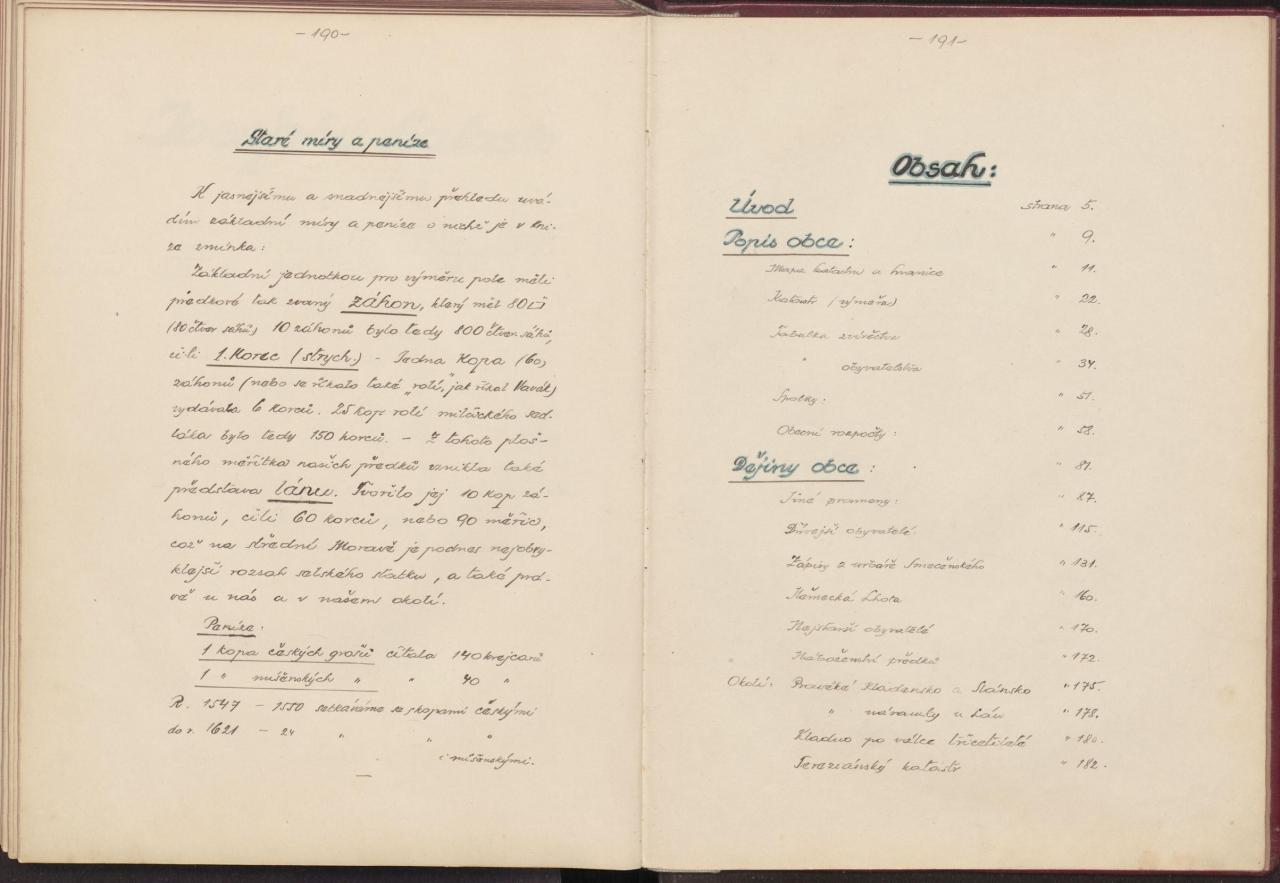 -190-
Staré míry a peníze
K jasnějšímu a snadnějšímu přehledu uvá-
dím základní míry a peníze o nichž je v kni-
ze zmínka:
Základní jednotkou pro výměru pole měli
předkové tak zvaný záhon, který měl 80□
(80 čtver sáhů) 10 záhonů bylo tedy 800 čtver. sáhů,
čili 1. Korec (strych.) - Jedna Kopa (60)
záhonů (nebo se říkalo také "rolí," jak říkal Vavák)
vydávala 6 korců. 25 kop rolí miličkého sed-
láka bylo tedy 150 korců. - Z tohoto ploš-
ného měřítka našich předků vznikla také
představa lánu. Tvořilo jej 10 kop zá-
honů, čili 60 korců, nebo 90 měřic,
což na střední Moravě je podnes nejobvy-
klejší rozsah selského statku, a také prá-
vě u nás a v našem okolí.
Peníze:
1 kopa českých grošů čítala 140 krejcarů
1 " míšenských " " 70 "
R. 1547 - 1550 setkáváme se s kopami českými
do r. 1621 - 24 " " "
i míšenskými.
-191-
Obsah:
Úvod strana 5.
Popis obce: " 9.
Mapa katastru a hranice " 11.
Katastr (výměra) " 22.
Tabulka zvířectva " 28.
" obyvatelstva " 34.
Spolky: " 51.
Obecní rozpočty: " 58.
Dějiny obce: " 81.
Jiné prameny: " 87.
Dřívejší obyvatelé. " 115.
Zápisy z urbáře Smečenského " 131.
Německá Lhota " 160.
Nejstarší obyvatelé " 170.
Náboženství předků " 172.
Okolí: Pravěké Kladensko a Slánsko " 175.
" náramky u Lán " 178.
Kladno po válce třicetileté " 180.
Tereziánský katastr " 182.